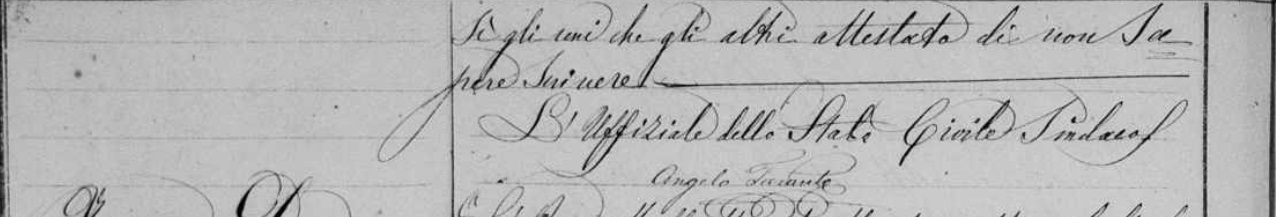 Si gli uni che gli altri attestato di non Sa
pere Scrivere
L'Uffiziale dello Stato Civile Sindaco
Angelo